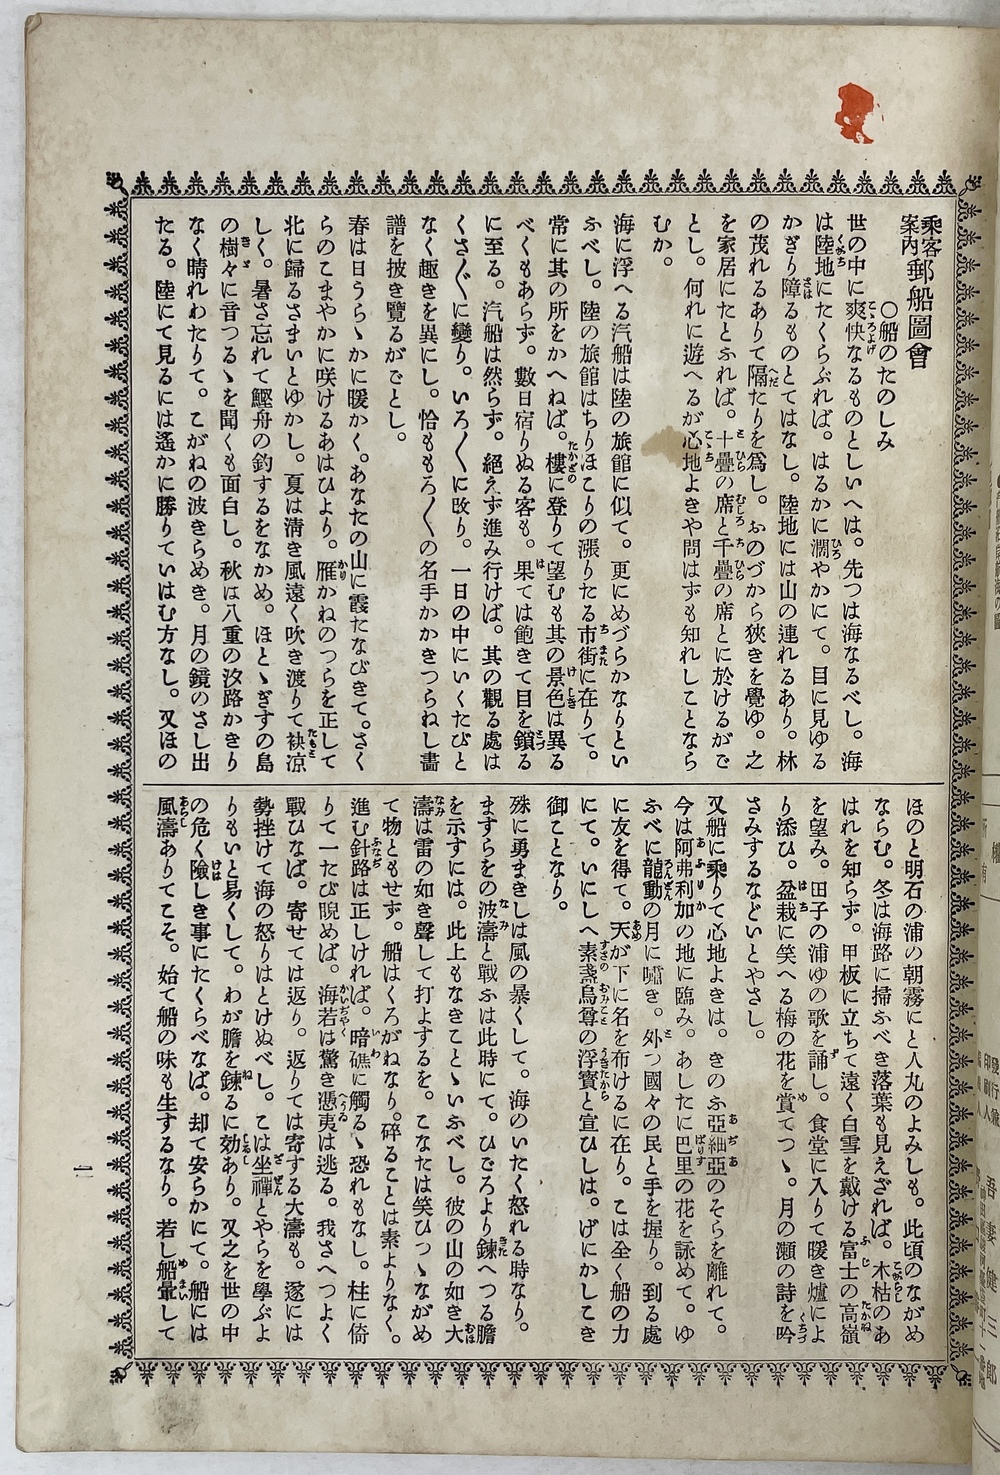 乘客案內郵船圖會
〇船のたのしみ
世の中に爽快なるものとしいへは。先つは海なるべし。海
は陸地にたくらぶれば。はるかに濶やかにて。目に見ゆる
かぎり障るものとてはなし。陸地には山の連れるあり。林
の茂れるありて隔たりを爲し。おのづから狹きを覺ゆ。之
を家居にたとふれば。十疊の席と千疊の席とに於けるがご
とし。何れに遊へるが心地よきや問はずも知れしことなら
むか。
海に浮へる汽船は陸の旅館に似て。更にめづらかなりとい
ふべし。陸の旅館はちりほこりの漲りたる市街に在りて。
常に其の所をかへねば。樓に登りて望むも其の景色は異る
べくもあらず。數日宿りぬる客も。果ては飽きて目を鎖る
に至る。汽船は然らず。絕えず進み行けば。其の觀る處は
くさ〴〵に變り。いろ〳〵に攺り。一日の中にいくたびと
なく趣きを異にし。恰ももろ〳〵の名手かかきつらねし畵
譜を披き覽るがごとし。
春は日うらゝかに暖かく。あなたの山に霞たなびきて。さく
らのこまやかに咲けるあはひより。雁かねのつらを正して
北に歸るさまいとゆかし。夏は淸き風遠く吹き渡りて袂凉
しく。暑さ忘れて鰹舟の釣するをなかめ。ほとゝぎすの島
の樹々に音つるゝを聞くも面白し。秋は八重の汐路かきり
なく晴れわたりて。こがねの波きらめき。月の鏡のさし出
たる。陸にて見るには遙かに勝りていはむ方なし。又ほの
ほのと明石の浦の朝霧にと人丸のよみしも。此頃のながめ
ならむ。冬は海路に掃ふべき落葉も見えざれば。木枯のあ
はれを知らず。甲板に立ちて遠く白雪を戴ける富士の高嶺
を望み。田子の浦ゆの歌を誦し。食堂に入りて暖き爐によ
り添ひ。盆栽に笑へる梅の花を賞てつゝ。月の瀨の詩を吟
さみするなどいとやさし。
又船に乘りて心地よきは。きのふ亞細亞のそらを離れて。
今は阿弗利加の地に臨み。あしたに巴里の花を詠めて。ゆ
ふべに龍動の月に嘯き。外つ國々の民と手を握り。到る處
に友を得て。天が下に名を布けるに在り。こは全く船の力
にて。いにしへ素盞烏尊の浮寳と宣ひしは。げにかしこき
御ことなり。
殊に勇まきしは風の暴くして。海のいたく怒れる時なり。
ますらをの波濤と戰ふは此時にて。ひごろより鍊へつる膽
を示すには。此上もなきことゝいふべし。彼の山の如き大
濤は雷の如き聲して打よするを。こなたは笑ひつゝながめ
て物ともせず。船はくろがねなり。碎ることは素よりなく。
進む針路は正しければ。暗礁に觸るゝ恐れもなし。柱に倚
りて一たび睨めば。海若は驚き憑夷は逃る。我さへつよく
戰ひなば。寄せては返り。返りては寄する大濤も。遂には
勢挫けて海の怒りはとけぬべし。こは坐禪とやらを學ぶよ
りもいと易くして。わが膽を鍊るに効あり。又之を世の中
の危く險しき事にたくらべなば。却て安らかにて。船には
風濤ありてこそ。始て船の味も生するなり。若し船暈して
十一